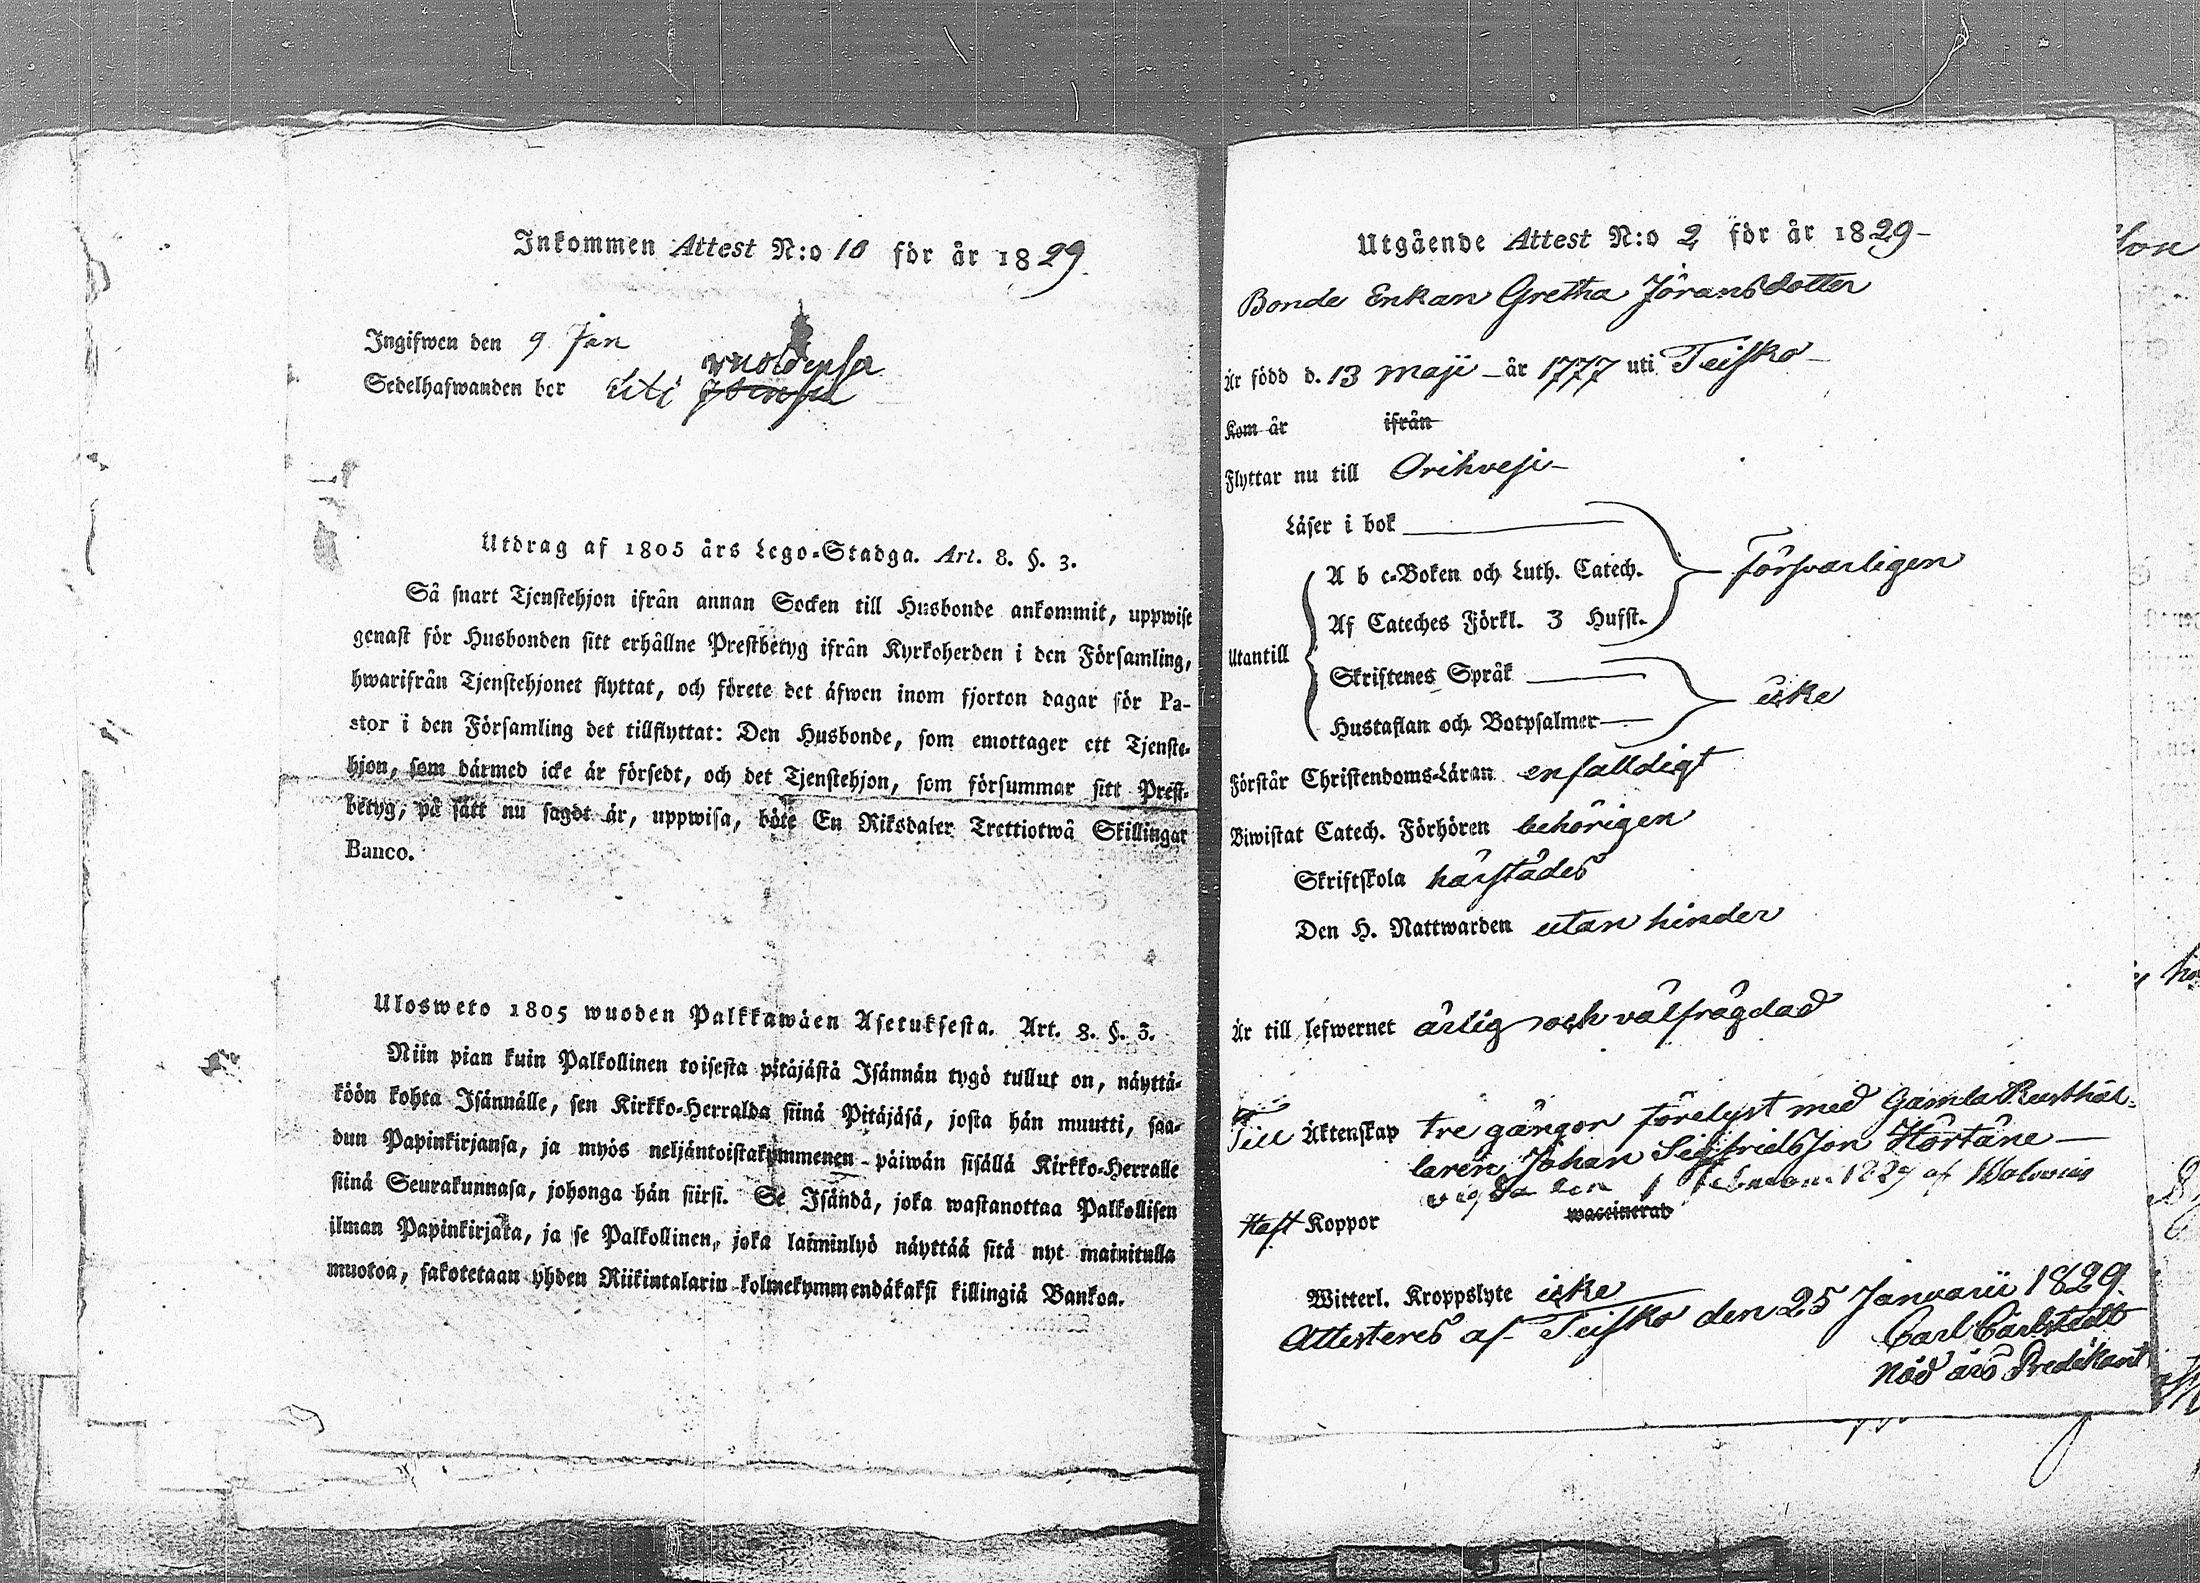 Inkommen Attest N:o 10 för år 1829.
Ingifwen den 9 Jan
Sedelhafwanden bor Uti
Utdrag af 1805 års Lego-Stadga. Art. 8. §. 3.
Så snart Tjenstehjon ifrån annan Socken till Husbonde ankommit, uppwise
genast för Husbonden sitt erhållne Prestbetyg ifrån Kyrkoherden i den Församling,
hwarifrån Tjenstehjonet flyttat, och förete det äfwen inom fjorton dagar för Pa-
stor i den Församling det tillflyttat: Den Husbonde, som emottager ett Tjenste-
hjon, som därmed icke är försedt, och det Tjenstehjon, som försummar sitt Prest-
betyg, på sätt nu sagdt är, uppwisa, böte En Riksdaler Trettiotwå Skillingar
Banco.
Ulosweto 1805 wuoden Palkkawäen Asetuksesta. Art. 8. §. 3.
Niin pian kuin Palkollinen toisesta pitäjästä Isännän tygö tullut on, näyttä-
köön kohta Isännälle, sen Kirkko-Herralda siinä Pitäjäsä, josta hän muutti, saa-
dun Papinkirjansa, ja myös neljäntoistakymmenen päiwän sisällä Kirkko-Herralle
siinä Seurakunnasa, johonga hän siirsi. Se Isändä, joka wastanottaa Palkollisen
ilman Papinkirjata, ja se Palkollinen, joka laiminlyö näyttää sitä nyt mainitulla
muotoa, sakotetaan yhden Riikintalarin kolmekymmendäkaksi killingiä Bankoa.
Utgående Attest N:o 2 för år 1829-
Bonde Enkan Gretha Jöransdotter
Är född d. 13 Maji - år 1777 uti Teisko-
Kom år ifrån
Flyttar nu till Orihvesi-
Läser i bok
A b c-Boken och Luth. Catech. försvarligen
Af Cateches Förkl. 3 Hufst.
Utantill
Skriftenes Språk
icke
Hustaflan och Botpsalmer
Förstår Christendoms-Läran enfalldigt
Biwistat Catech. Förhören behörigen
Skriftskola härstädes
Den H. Nattwarden utan hinder
Är till lefwernet ärlig och välfrägdad
Till Äktenskap tre gångor förelyst med Gamla Rusthål-
laren Johan Sigfridsson Hörtäne-
vigda den 1 Februari 1829 af
Haft Koppor waccinerad
Witterl. Kroppslyte icke
Attesteres af Teisko den 25 Januarii 1829.
Carl Carlstedt
Nöd års Predikant